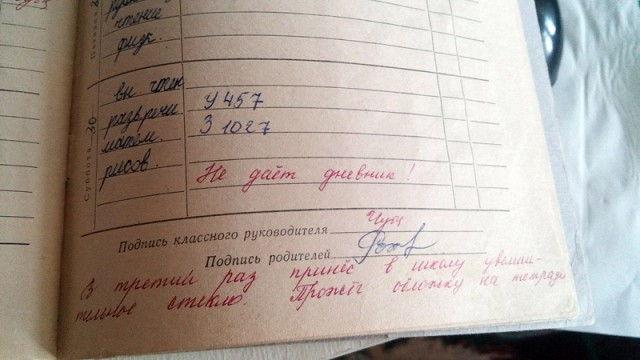 чтение
физк.
Суббота 30
вн. чтен
разв. речи
У 457
матем.
З 1027
рисов.
Не даёт дневник!
Подпись классного руководителя
Подпись родителей
В третий раз принёс в школу увеличи-
тельное стекло. Прожёг обложку на тетради